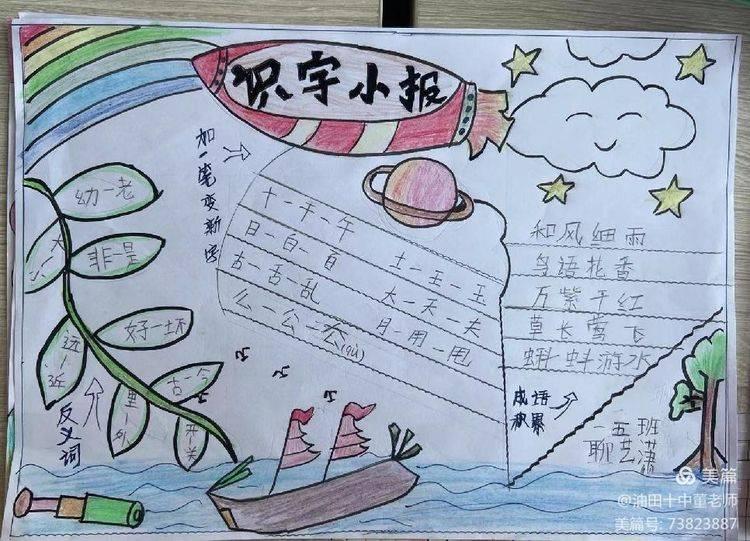 识字小报
加一笔变新字
十一千一午
日一白一百
土一王一玉
古一舌一乱
大一天一夫
么一公一
(qù)
月一用一甩
幼一老
大一小
非一是
好一坏
远一近
古一今
里一外
开一关
反义词
和风细雨
鸟语花香
万紫千红
草长莺飞
蝌蚪游水
成语
积累
一五班
聊艺潇
美篇
@油田十中董老师
美篇号: 73823887